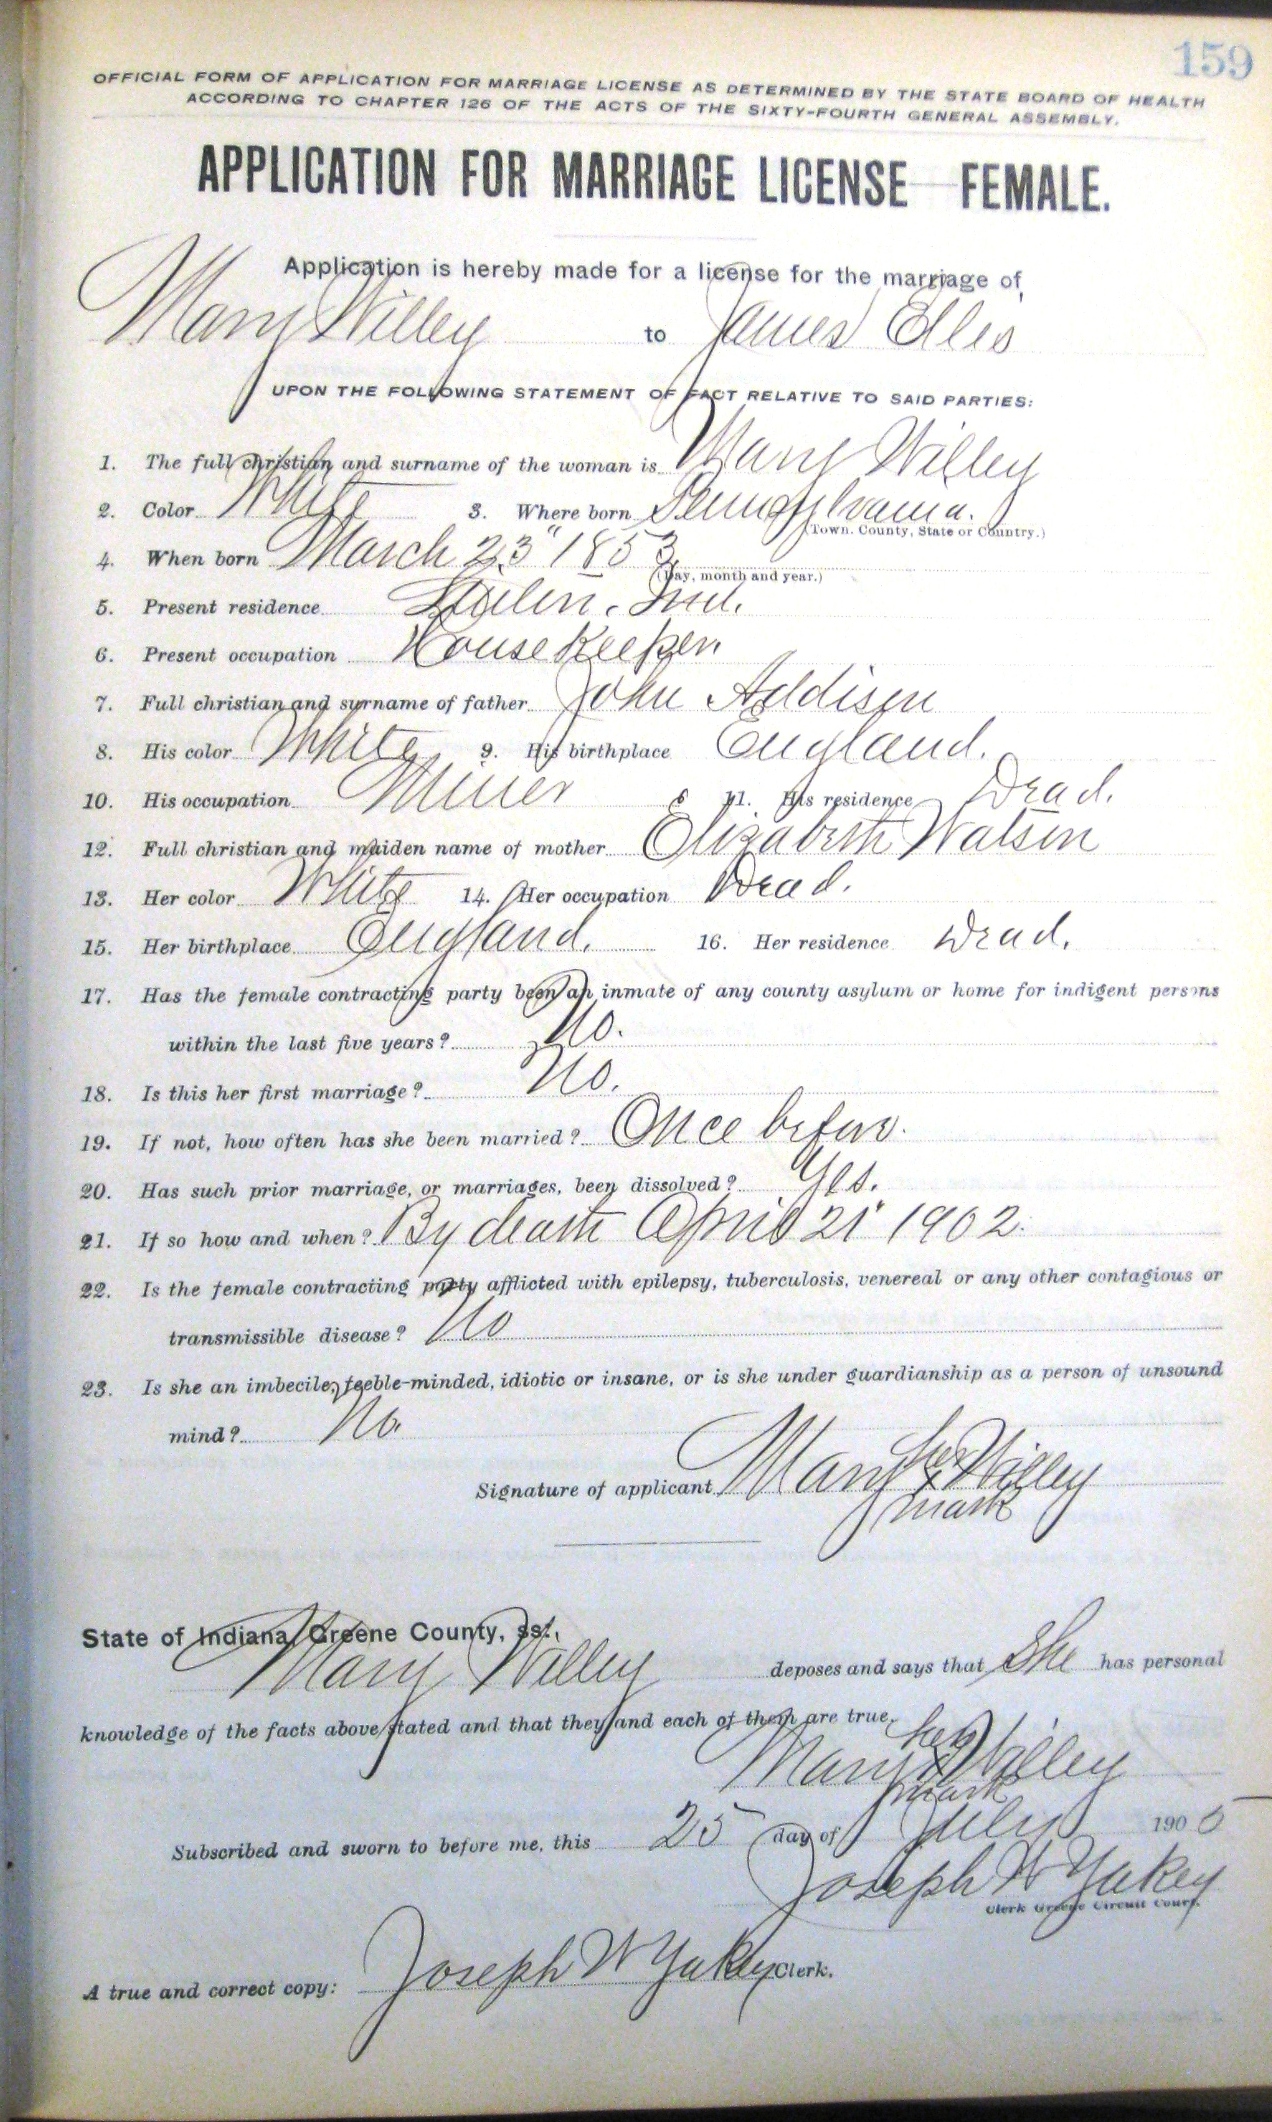 159
OFFICIAL FORM OF APPLICATION FOR MARRIAGE LICENSE AS DETERMINED BY THE STATE BOARD OF HEALTH
ACCORDING TO CHAPTER 126 OF THE ACTS OF THE SIXTY-FOURTH GENERAL ASSEMBLY.
APPLICATION FOR MARRIAGE LICENSE FEMALE.
Application is hereby made for a license for the marriage of
Mary Willey to James Ellis
UPON THE FOLLOWING STATEMENT OF FACT RELATIVE TO SAID PARTIES:
1. The full christian and surname of the woman is Mary Willey
2. Color White 3. Where born Pennsylvania.
(Town. County, State or Country.)
4. When born March 23" 1853
(Day, month and year.)
5. Present residence Ind.
6. Present occupation House Keeper.
7. Full christian and surname of father John Addison
8. His color White 9. His birthplace England.
10. His occupation Miner 11. His residence Dead.
12. Full christian and maiden name of mother Elizabeth Watson
13. Her color White 14. Her occupation Dead.
15. Her birthplace England. 16. Her residence Dead.
17. Has the female contracting party been an inmate of any county asylum or home for indigent persons
within the last five years? No.
18. Is this her first marriage? No.
19. If not, how often has she been married? Once before.
20. Has such prior marriage, or marriages, been dissolved? Yes.
21. If so how and when? By death April 21" 1902.
22. Is the female contracting party afflicted with epilepsy, tuberculosis, venereal or any other contagious or
transmissible disease? No
23. Is she an imbecile, feeble-minded, idiotic or insane, or is she under guardianship as a person of unsound
mind? No.
Signature of applicant Mary her x mark Willey
State of Indiana, Greene County, ss:
Mary Willey deposes and says that She has personal
knowledge of the facts above stated and that they and each of them are true.
Mary her x mark Willey
Subscribed and sworn to before me, this 25 day of July 1905
Joseph W Yakey
Clerk Greene Circuit Court.
A true and correct copy: Joseph W Yakey Clerk.